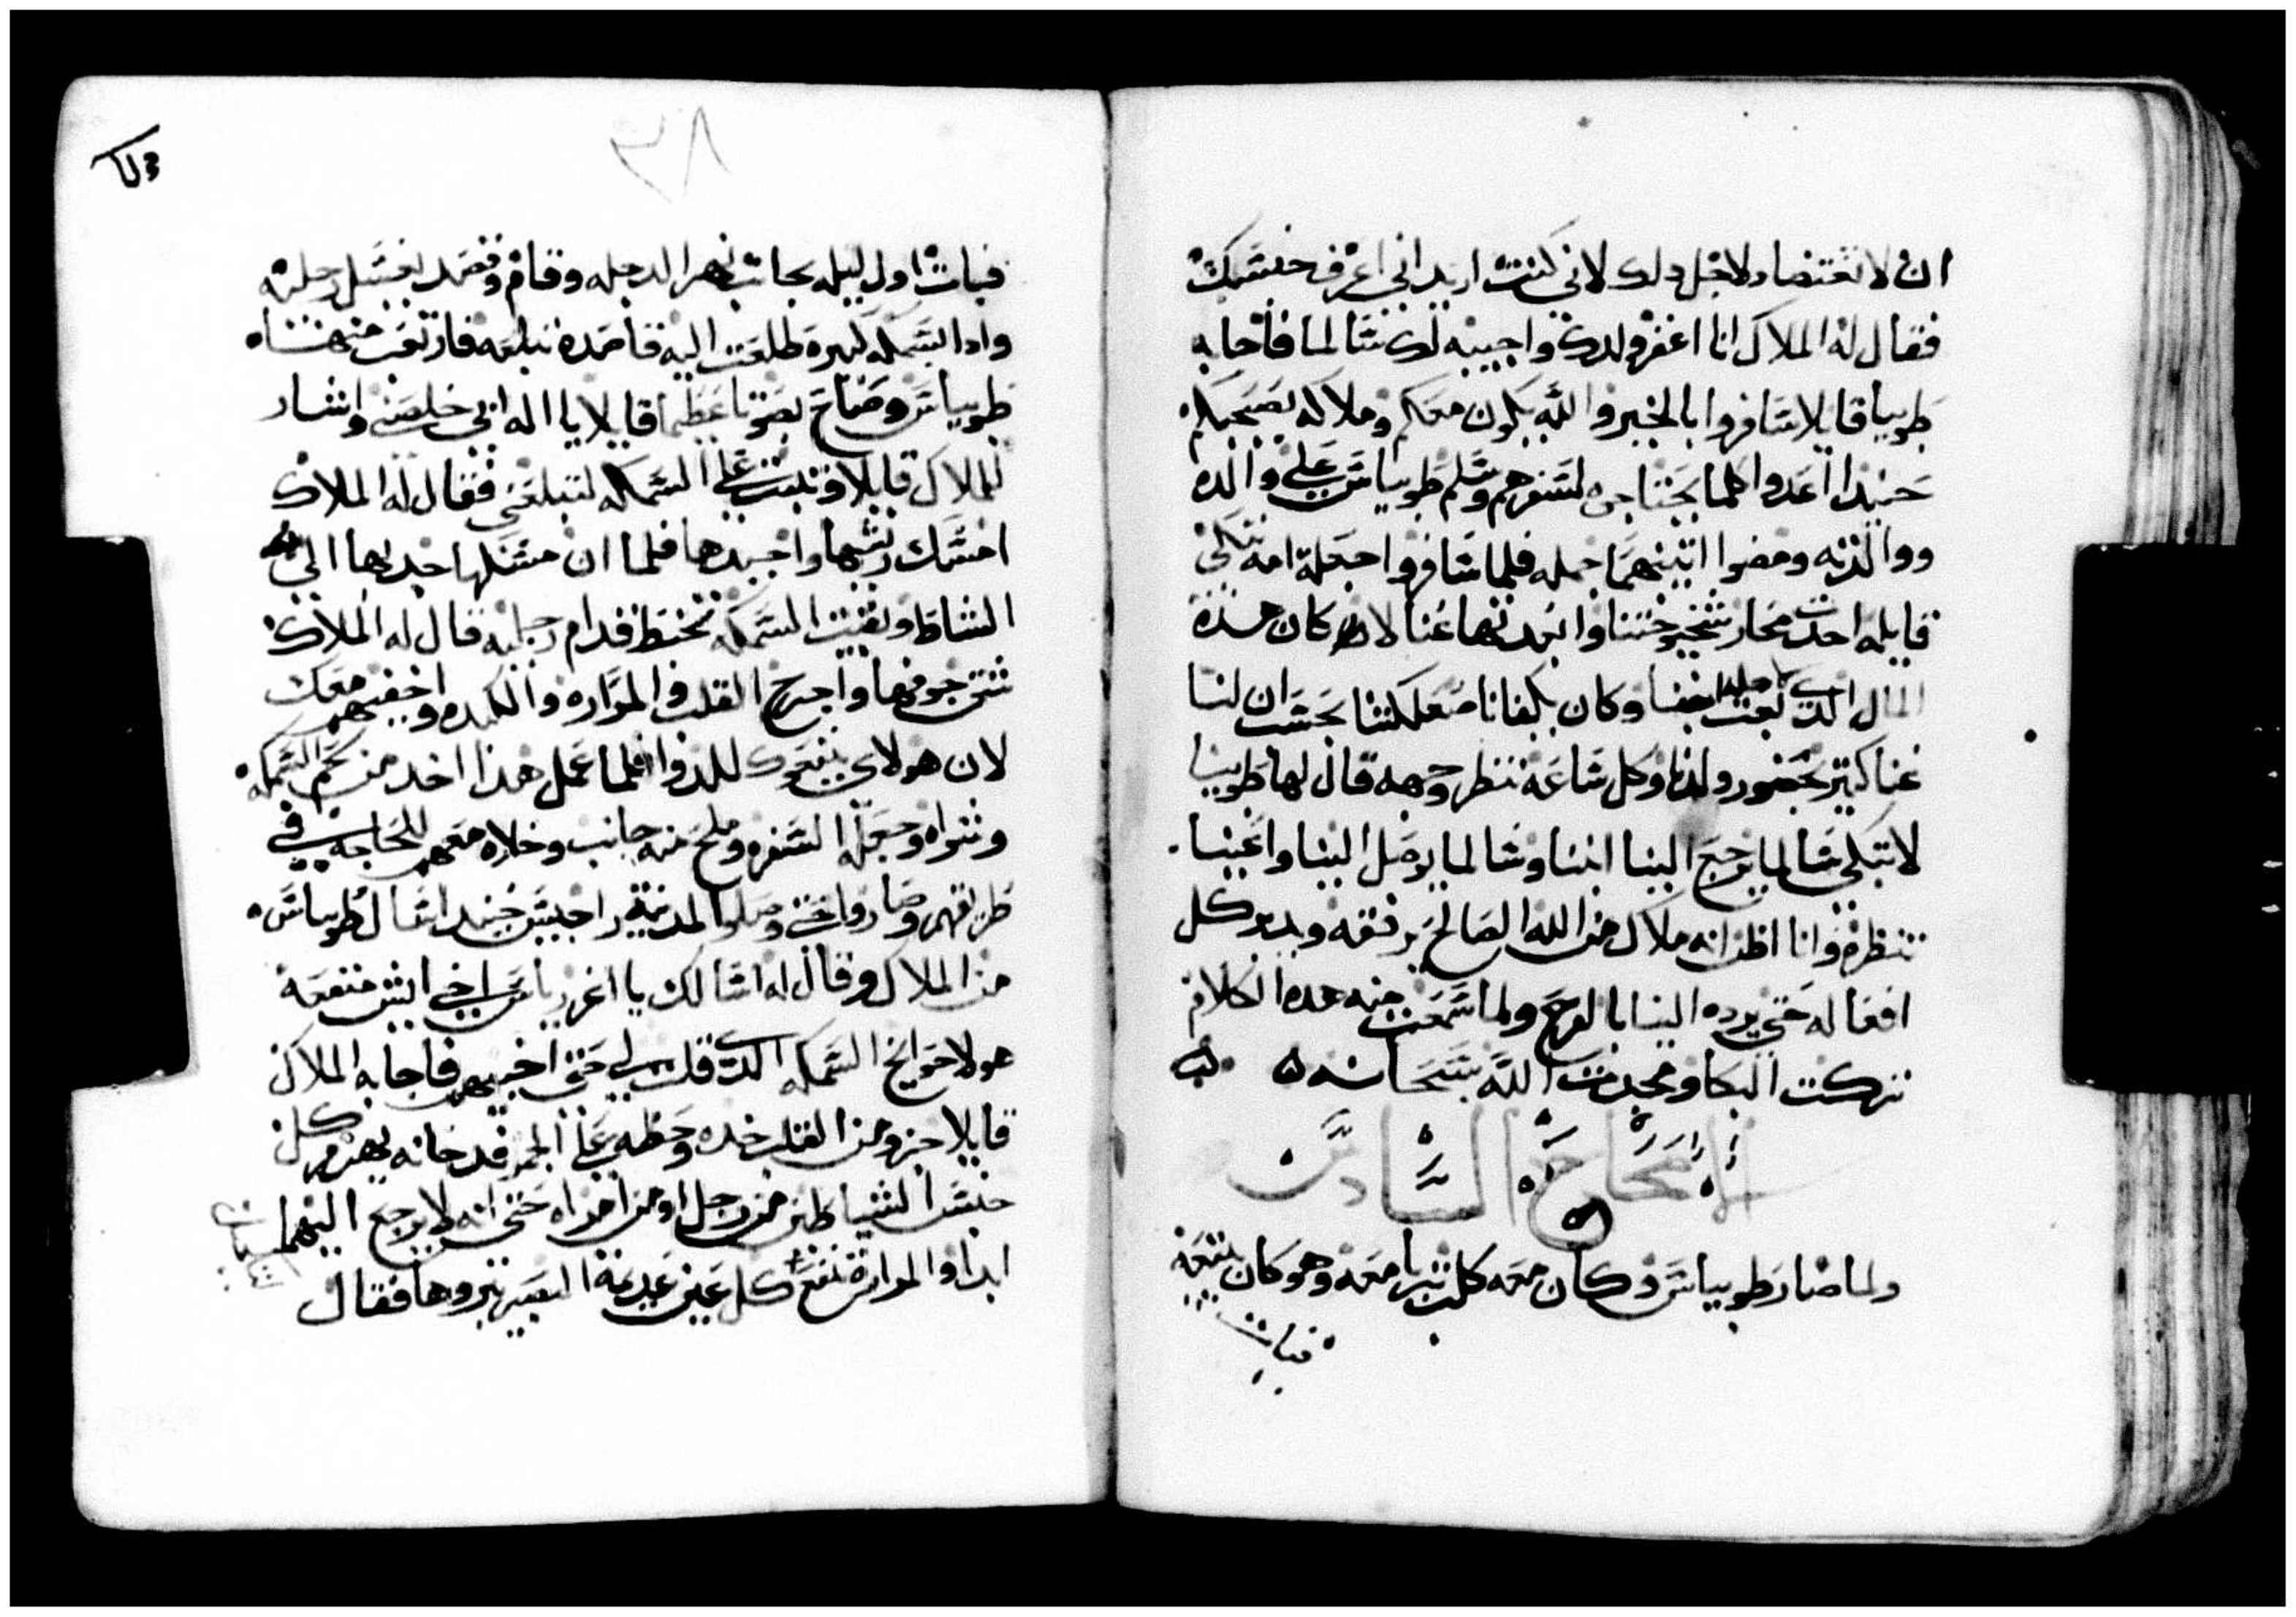 ان لا تغتضا ولاجل دلك لاني كنت اريد اني اعرف جنسك
فقال له الملاك انا اغفر ولدك واجيبه لك سالما فاجابه
طوبيا قايلا سافروا بالخير والله يكون معكم وملاكه يصحبكم
حنيدا اعدوا كلما يحتاجوه لسفرهم وسلم طوبياس علي والده
ووالدته ومضوا اتنينهما جمله فلما سافروا جعلة امه تبكي
قايله احدت عكاز شيخوختنا وابعدتها عنا لا كان هده
المال الدي بعت لاجله ابننا وكان يكفانا صعلكتنا بحسب ان لنا
غنا كتير بحضور ولدنا وكل ساعه ننظر وجهه قال لها طوبيا
لا تبكي سالما يرجع الينا ابننا وسالما يوصل الينا واعيننا
تنظره وانا اظن انه ملاك من الله الصالح يرفقه ويدبر كل
افعاله حتي يرده الينا بالفرح ولما سمعت منه هده الكلام
تركت البكا ومجدت الله سبحانه
الاصحاح السادس
ولما صار طوبياس وكان معه كلب تربا معه وهو كان يتبعه
فبات
٨٢
فبات اول ليله بجانب نهر الدجله وقام وقصد يغسل رجليه
وادا بسمكه كبيره طلعت اليه قاصده تبلعه فارتعب منها
طوبياس وصاح بصوتا عظيما قايلا يا اله ابي خلصني واشار
للملاك قايلا وتبت علي السمكه لتبلعني فقال له الملاك
امسك ريشها واجبدها فلما ان مسكها جدبها الي
الشاطا وبقيت السمكه تختبط قدام رجليه قال له الملاك
شق جوفها واخرج القلب والمراره والكبده واخفيهم معك
لان هولاي ينفعوك للدوا فلما عمل هدا اخد من لحم السمكه
وشواه وجعله السفره وملح منه جانب وخلاه معهم للحاجه في
طريقهم وصاروا حتي وصلوا المدينة راجيس حنيدا سال طوبياس
من الملاك وقال له اسالك يا اغزرياس اخي ايش منفعة
هولا حوايج السمكه الدي قلت لي حتي اخبيهم فاجابه الملاك
قايلا جزو من القلب خده وحطه علي الجمر فدخانه يهزم كل
جنس الشياطين من رجل او من امراه حتي انه لا يرجع اليهما
ابدا والمراره تنفع كل عين عديمة البصر تبروها فقال